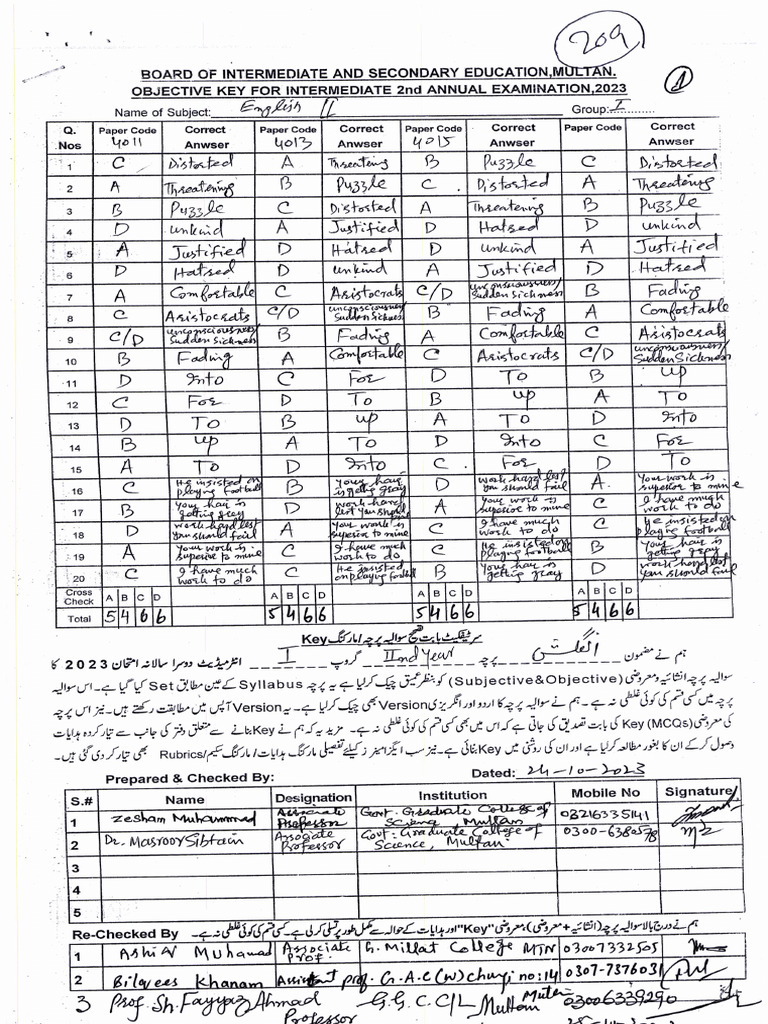 209
BOARD OF INTERMEDIATE AND SECONDARY EDUCATION,MULTAN.
OBJECTIVE KEY FOR INTERMEDIATE 2nd ANNUAL EXAMINATION,2023
1
Name of Subject: English II Group: I
Q. Nos Paper Code 4011 Correct Anwser Paper Code 4013 Correct Anwser Paper Code 4015 Correct Anwser Paper Code Correct Anwser
1 C Distorted A Threatening B Puzzle C Distorted
2 A Threatening B Puzzle C Distorted A Threatening
3 B Puzzle C Distorted A Threatening B Puzzle
4 D unkind A Justified D Hatred D unkind
5 A Justified D Hatred D unkind A Justified
6 D Hatred D unkind A Justified D Hatred
7 A Comfortable C Aristocrats C/D unconsciousness/ Sudden Sickness B Fading
8 C Aristocrats C/D unconsciousness/ Sudden Sickness B Fading A Comfortable
9 C/D unconsciousness/ Sudden Sickness B Fading A Comfortable C Aristocrats
10 B Fading A Comfortable C Aristocrats C/D unconsciousness/ Sudden Sickness
11 D Into C For D To B up
12 C For D To B up A To
13 D To B up A To D Into
14 B up A To D Into C For
15 A To D Into C For D To
16 C He insisted on playing football B Your hair is getting gray D work hard lest you should fail A Your work is superior to mine
17 B Your hair is getting gray D work hard lest you should fail A Your work is superior to mine C I have much work to do
18 D work hard lest you should fail A Your work is superior to mine C I have much work to do C He insisted on playing football
19 A Your work is superior to mine C I have much work to do C He insisted on playing football B Your hair is getting gray
20 C I have much work to do C He insisted on playing football B Your hair is getting gray D work hard lest you should fail
Cross Check A B C D A B C D A B C D A B C D
Total 5 4 6 6 5 4 6 6 5 4 6 6 5 4 6 6
سرٹیفکیٹ بابت تصحیح سوالیہ پرچہ/مارکنگ Key
ہم نے مضمون انگلش پرچہ IInd Year گروپ I انٹرمیڈیٹ دوسرا سالانہ امتحان 2023 کا
سوالیہ پرچہ انشائیہ و معروضی (Subjective&Objective) کو بنظر عمیق چیک کرلیا ہے یہ پرچہ Syllabus کے عین مطابق Set کیا گیا ہے۔ اس سوالیہ
پرچہ میں کسی قسم کی کوئی غلطی نہ ہے۔ ہم نے سوالیہ پرچہ کا اردو اور انگریزی Version بھی چیک کرلیا ہے۔ یہ Version آپس میں مطابقت رکھتے ہیں۔ نیز اس پرچہ
کی معروضی (MCQs) Key کی بابت تصدیق کی جاتی ہے کہ اس میں بھی کسی قسم کی کوئی غلطی نہ ہے۔ مزید یہ کہ ہم نے Key بنانے سے متعلق دفتر کی جانب سے تیار کردہ ہدایات
وصول کرکے ان کا بغور مطالعہ کرلیا ہے اور ان کی روشنی میں Key بنائی ہے۔ نیز سب ایگزامینرز کیلئے تفصیلی مارکنگ ہدایات/مارکنگ سکیم/Rubrics بھی تیار کردی گئی ہیں۔
Prepared & Checked By: Dated: 24-10-2023
S.# Name Designation Institution Mobile No Signature
1 Zesham Muhammad Associate Professor Govt. Graduate College of Science, Multan 03216335141
2 Dr. Masroor Sibtain Associate Professor Govt: Graduate College of Science, Multan 0300-6380578
3
4
5
Re-Checked By ہم نے درج بالا سوالیہ پرچہ (انشائیہ + معروضی)، معروضی "Key" اور ہدایات کے حوالہ سے مکمل طور پر تسلی کرلی ہے۔ کسی قسم کی کوئی غلطی نہ ہے۔
1 Muhamad Associate Prof. G. Millat College MTN 03007332505
2 Bilqees Khanam Assistant prof. G.A.C (W) chungi no:14 0307-7376031
3 Prof. Sh. Fayyaz Ahmad Professor G.G.C. C/L Multan 03006339290